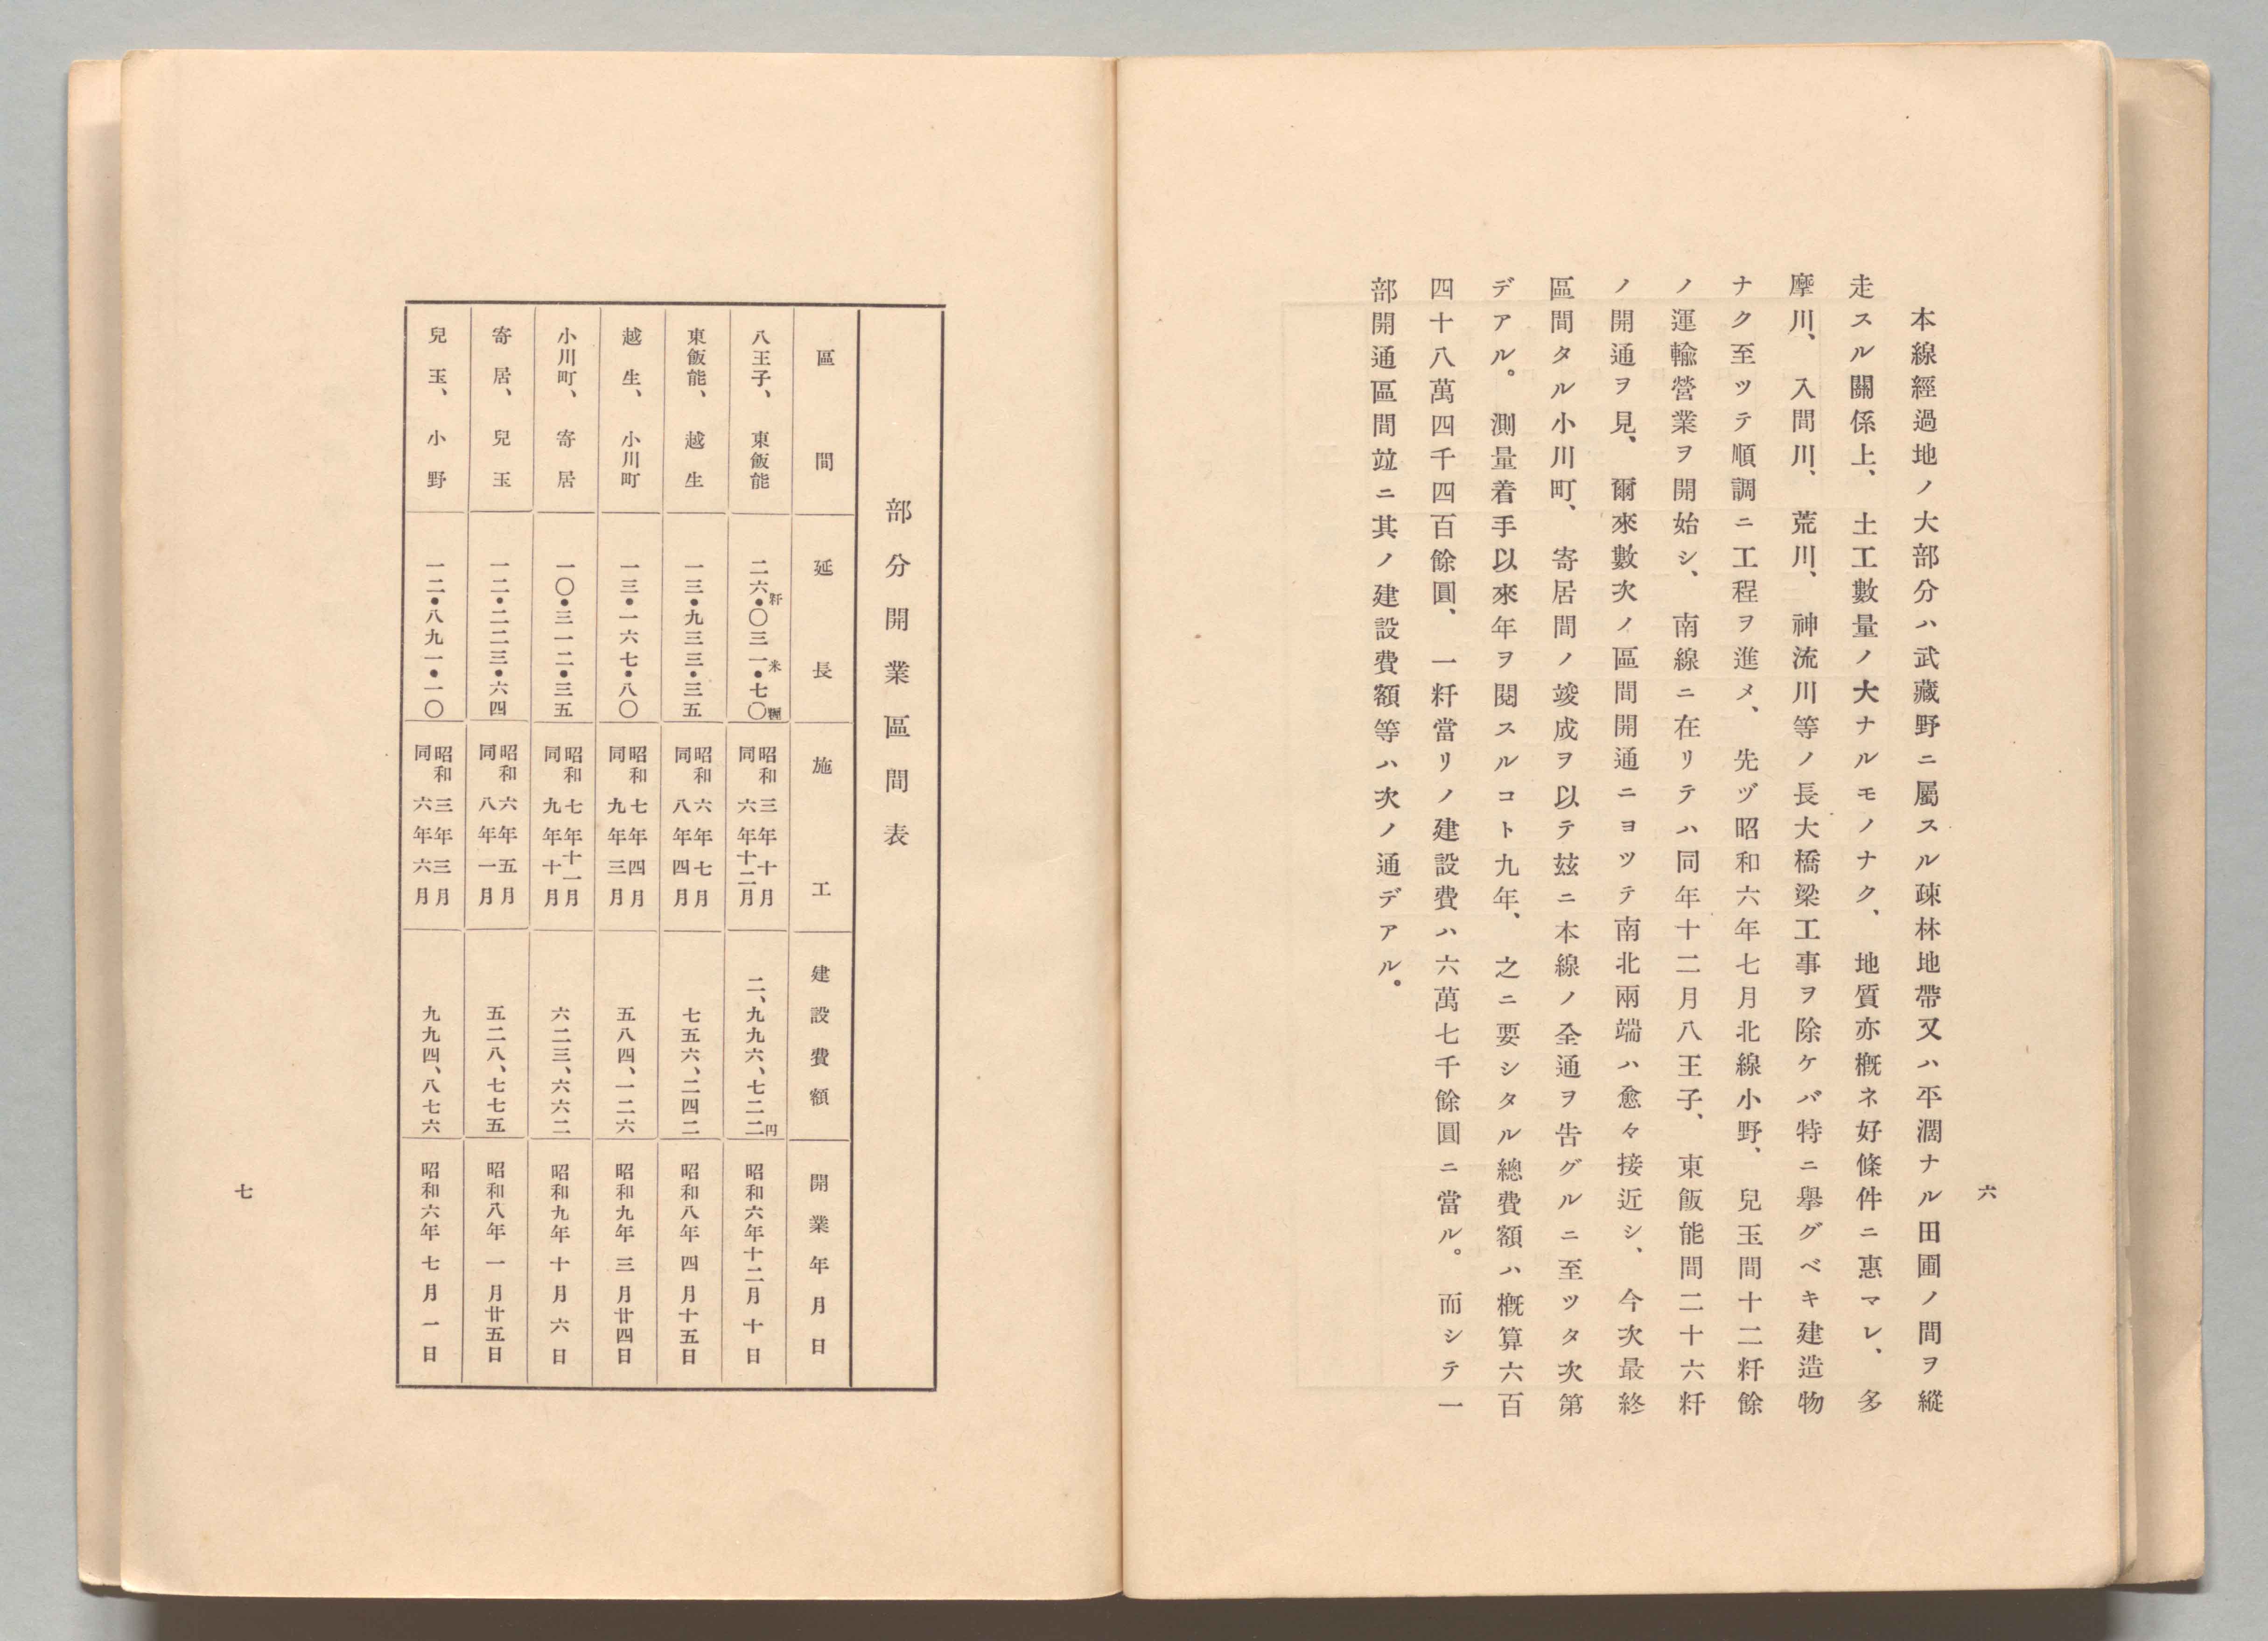 六
本線經過地ノ大部分ハ武藏野ニ屬スル疎林地帶又ハ平濶ナル田圃ノ間ヲ縱
走スル關係上、土工數量ノ大ナルモノナク、地質亦槪ネ好條件ニ惠マレ、多
摩川、入間川、荒川、神流川等ノ長大橋梁工事ヲ除ケバ特ニ擧グベキ建造物
ナク至ツテ順調ニ工程ヲ進メ、先ヅ昭和六年七月北線小野、兒玉間十二粁餘
ノ運輸營業ヲ開始シ、南線ニ在リテハ同年十二月八王子、東飯能間二十六粁
ノ開通ヲ見、爾來數次ノ區間開通ニヨツテ南北兩端ハ愈々接近シ、今次最終
區間タル小川町、寄居間ノ竣成ヲ以テ玆ニ本線ノ全通ヲ吿グルニ至ツタ次第
デアル。測量着手以來年ヲ閱スルコト九年、之ニ要シタル總費額ハ槪算六百
四十八萬四千四百餘圓、一粁當リノ建設費ハ六萬七千餘圓ニ當ル。而シテ一
部開通區間竝ニ其ノ建設費額等ハ次ノ通デアル。
部分開業區間表
區間 延長 施工 建設費額 開業年月日
八王子、東飯能 二六粁・〇三一米・七〇糎 昭和三年十月 同六年十二月 二、九九六、七二二円 昭和六年十二月十日
東飯能、越生 一三・九三三・三五 昭和六年七月 同八年四月 七五六、二四二 昭和八年四月十五日
越生、小川町 一三・一六七・八〇 昭和七年四月 同九年三月 五八四、一二六 昭和九年三月廿四日
小川町、寄居 一〇・三一二・三五 昭和七年十一月 同九年十月 六二三、六六二 昭和九年十月六日
寄居、兒玉 一二・二二三・六四 昭和六年五月 同八年一月 五二八、七七五 昭和八年一月廿五日
兒玉、小野 一二・八九一・一〇 昭和三年三月 同六年六月 九九四、八七六 昭和六年七月一日
七